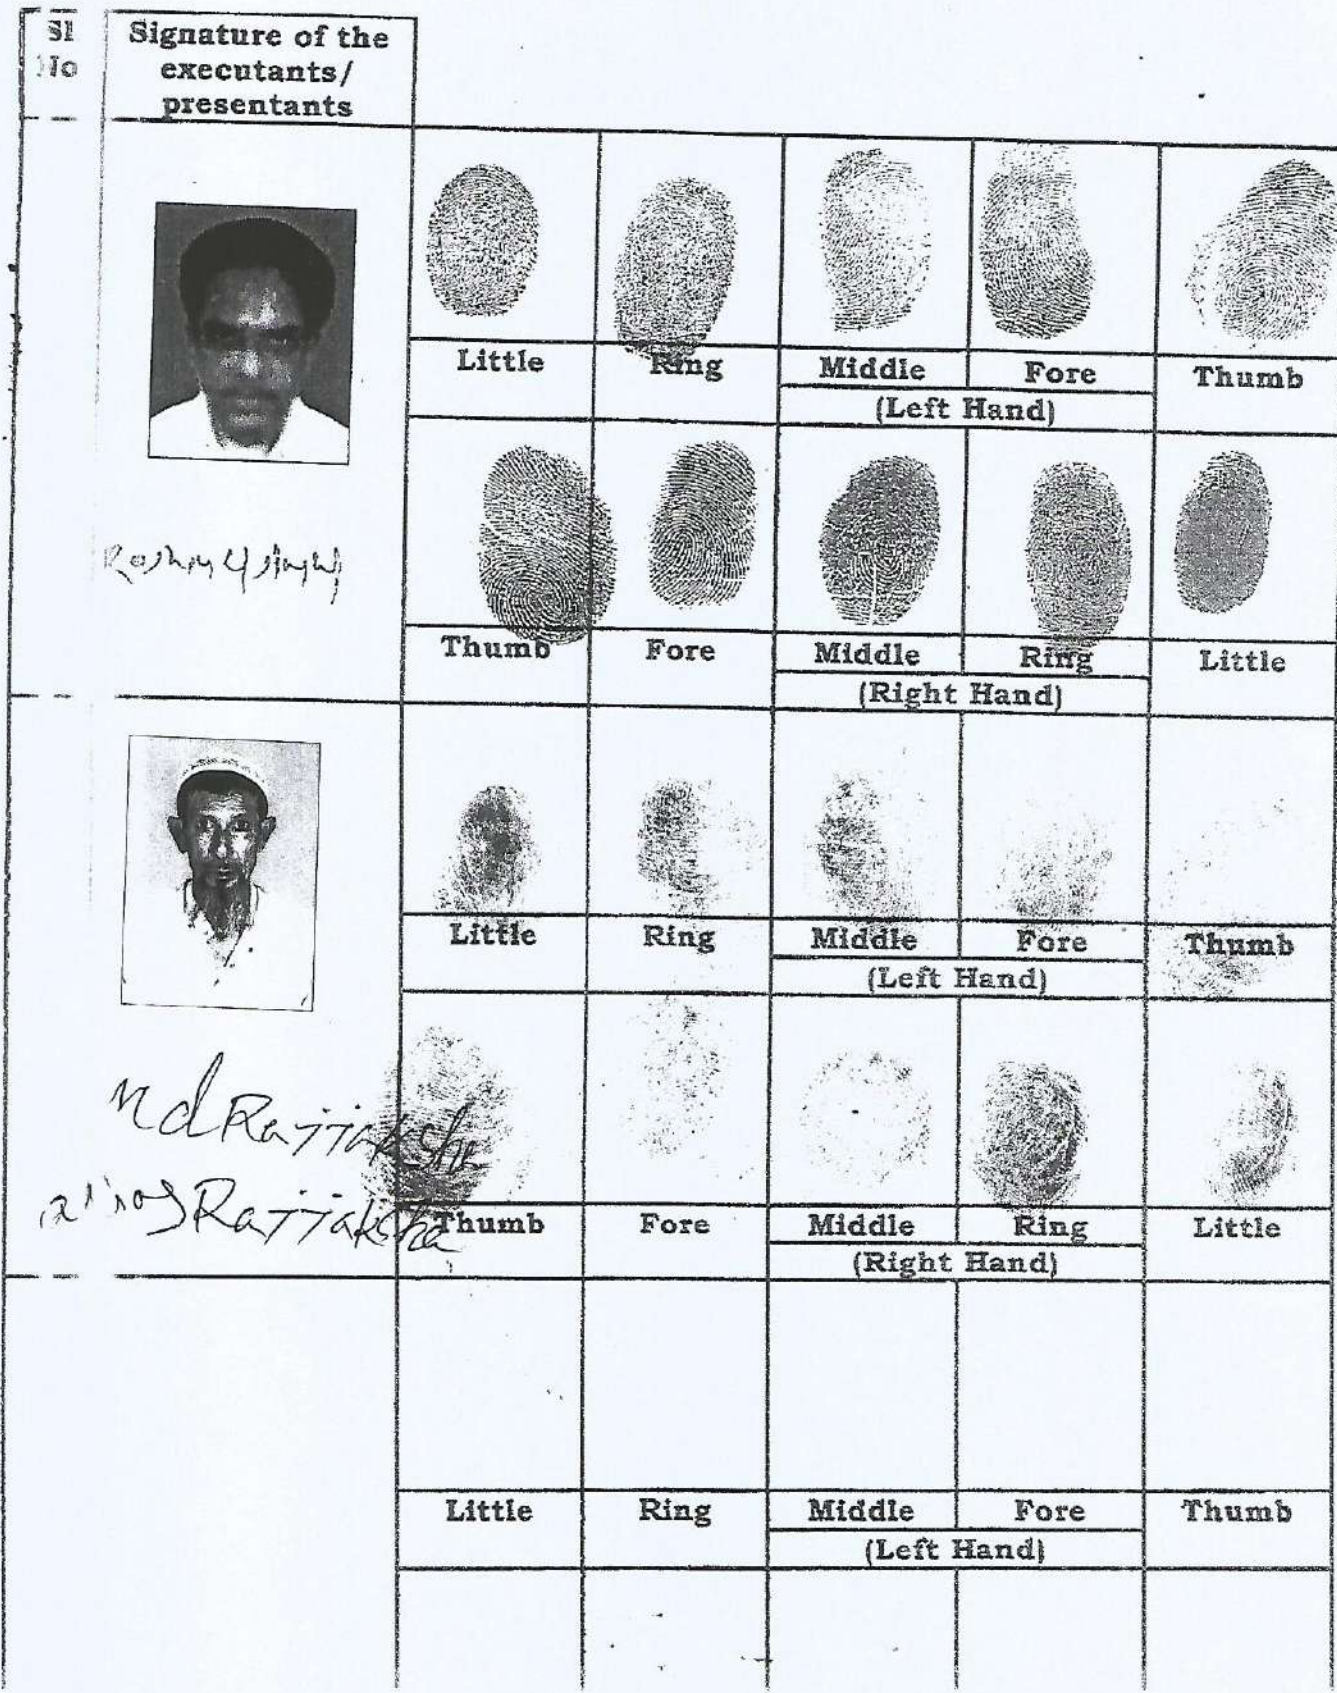 Sl
No
Signature of the
executants/
presentants
Little Ring Middle Fore Thumb
(Left Hand)
Thumb Fore Middle Ring Little
(Right Hand)
Little Ring Middle Fore Thumb
(Left Hand)
Md Rajjak Sha
Rajjak Sha
Thumb Fore Middle Ring Little
(Right Hand)
Little Ring Middle Fore Thumb
(Left Hand)